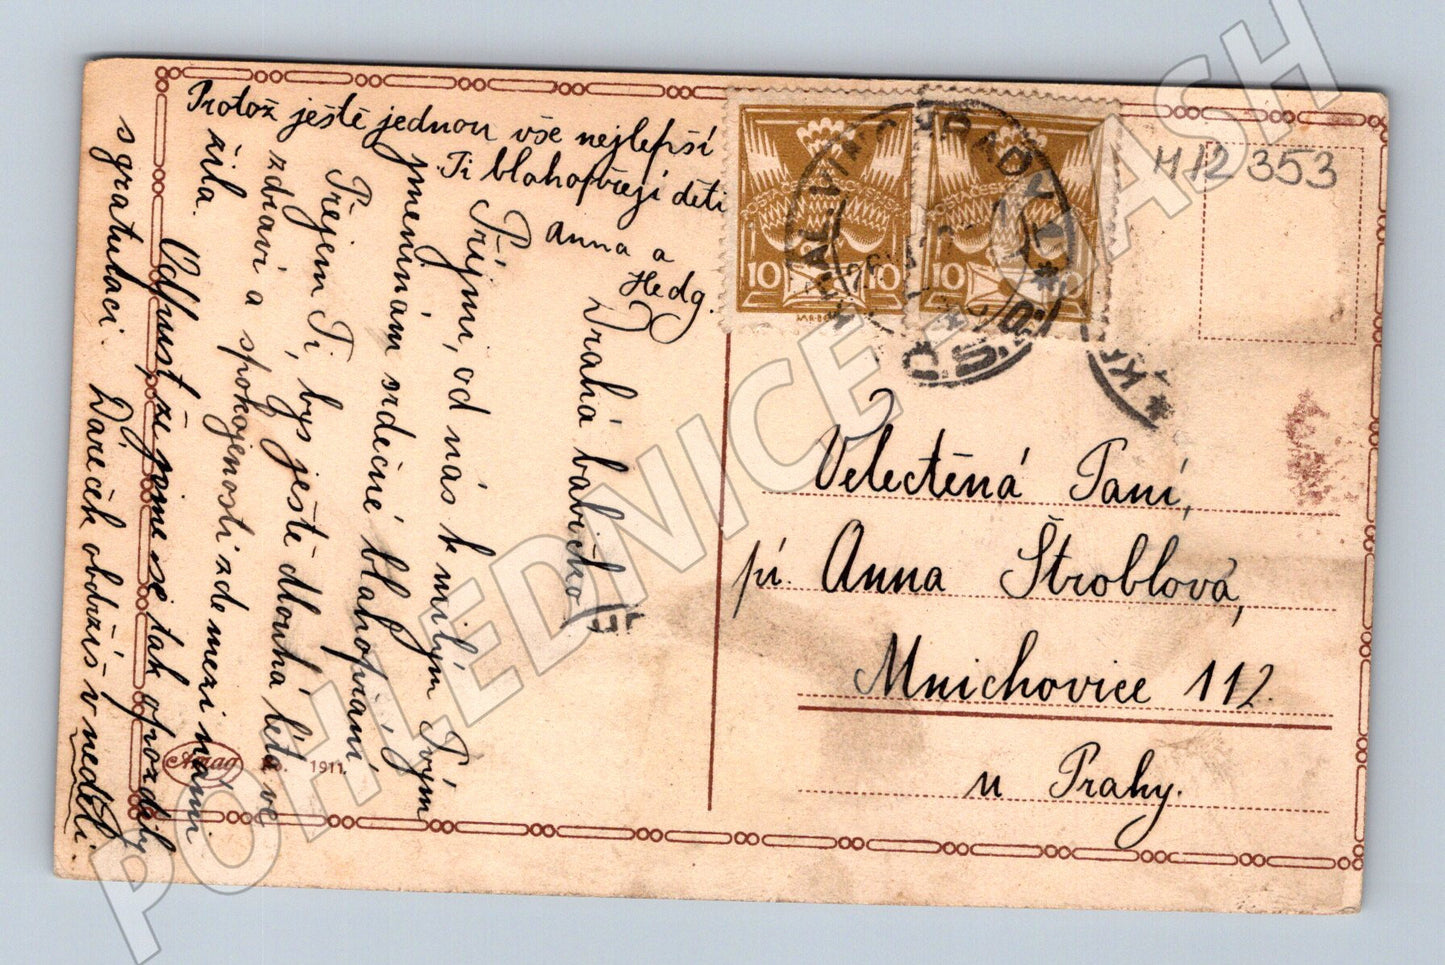 Drahá babičko!
Přijmi, od nás k milým Tvým
jmeninám srdečné blahopřání,
Přejem Ti, bys ještě dlouhá léta ve
zdraví a spokojenosti zde mezi námi
žila. Odpusť, že jsme se tak opozdily
s gratulací. Dáreček obdržíš v neděli.
Protož ještě jednou vše nejlepší
Ti blahopřejí děti
Anna a
Hedg.
Amag
No. 1911.
10 10
10 10
KRÁL. VINOHRADY
M12353
Velectěná Paní,
pí. Anna Štroblová,
Mnichovice 112.
u Prahy.
POHLEDNICE-SASH